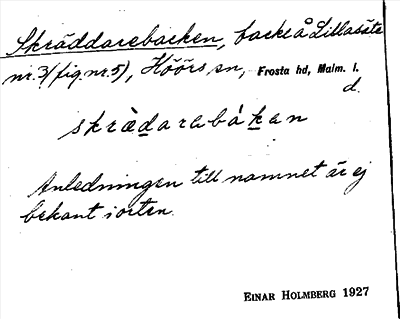 Skräddarebacken, backe å Lillasäte
nr. 3 (fig. nr. 5), Höörs sn, Frosta hd, Malm. l.
d.
skrædarabákan
Anledningen till namnet är ej
bekant i orten.
EINAR HOLMBERG 1927